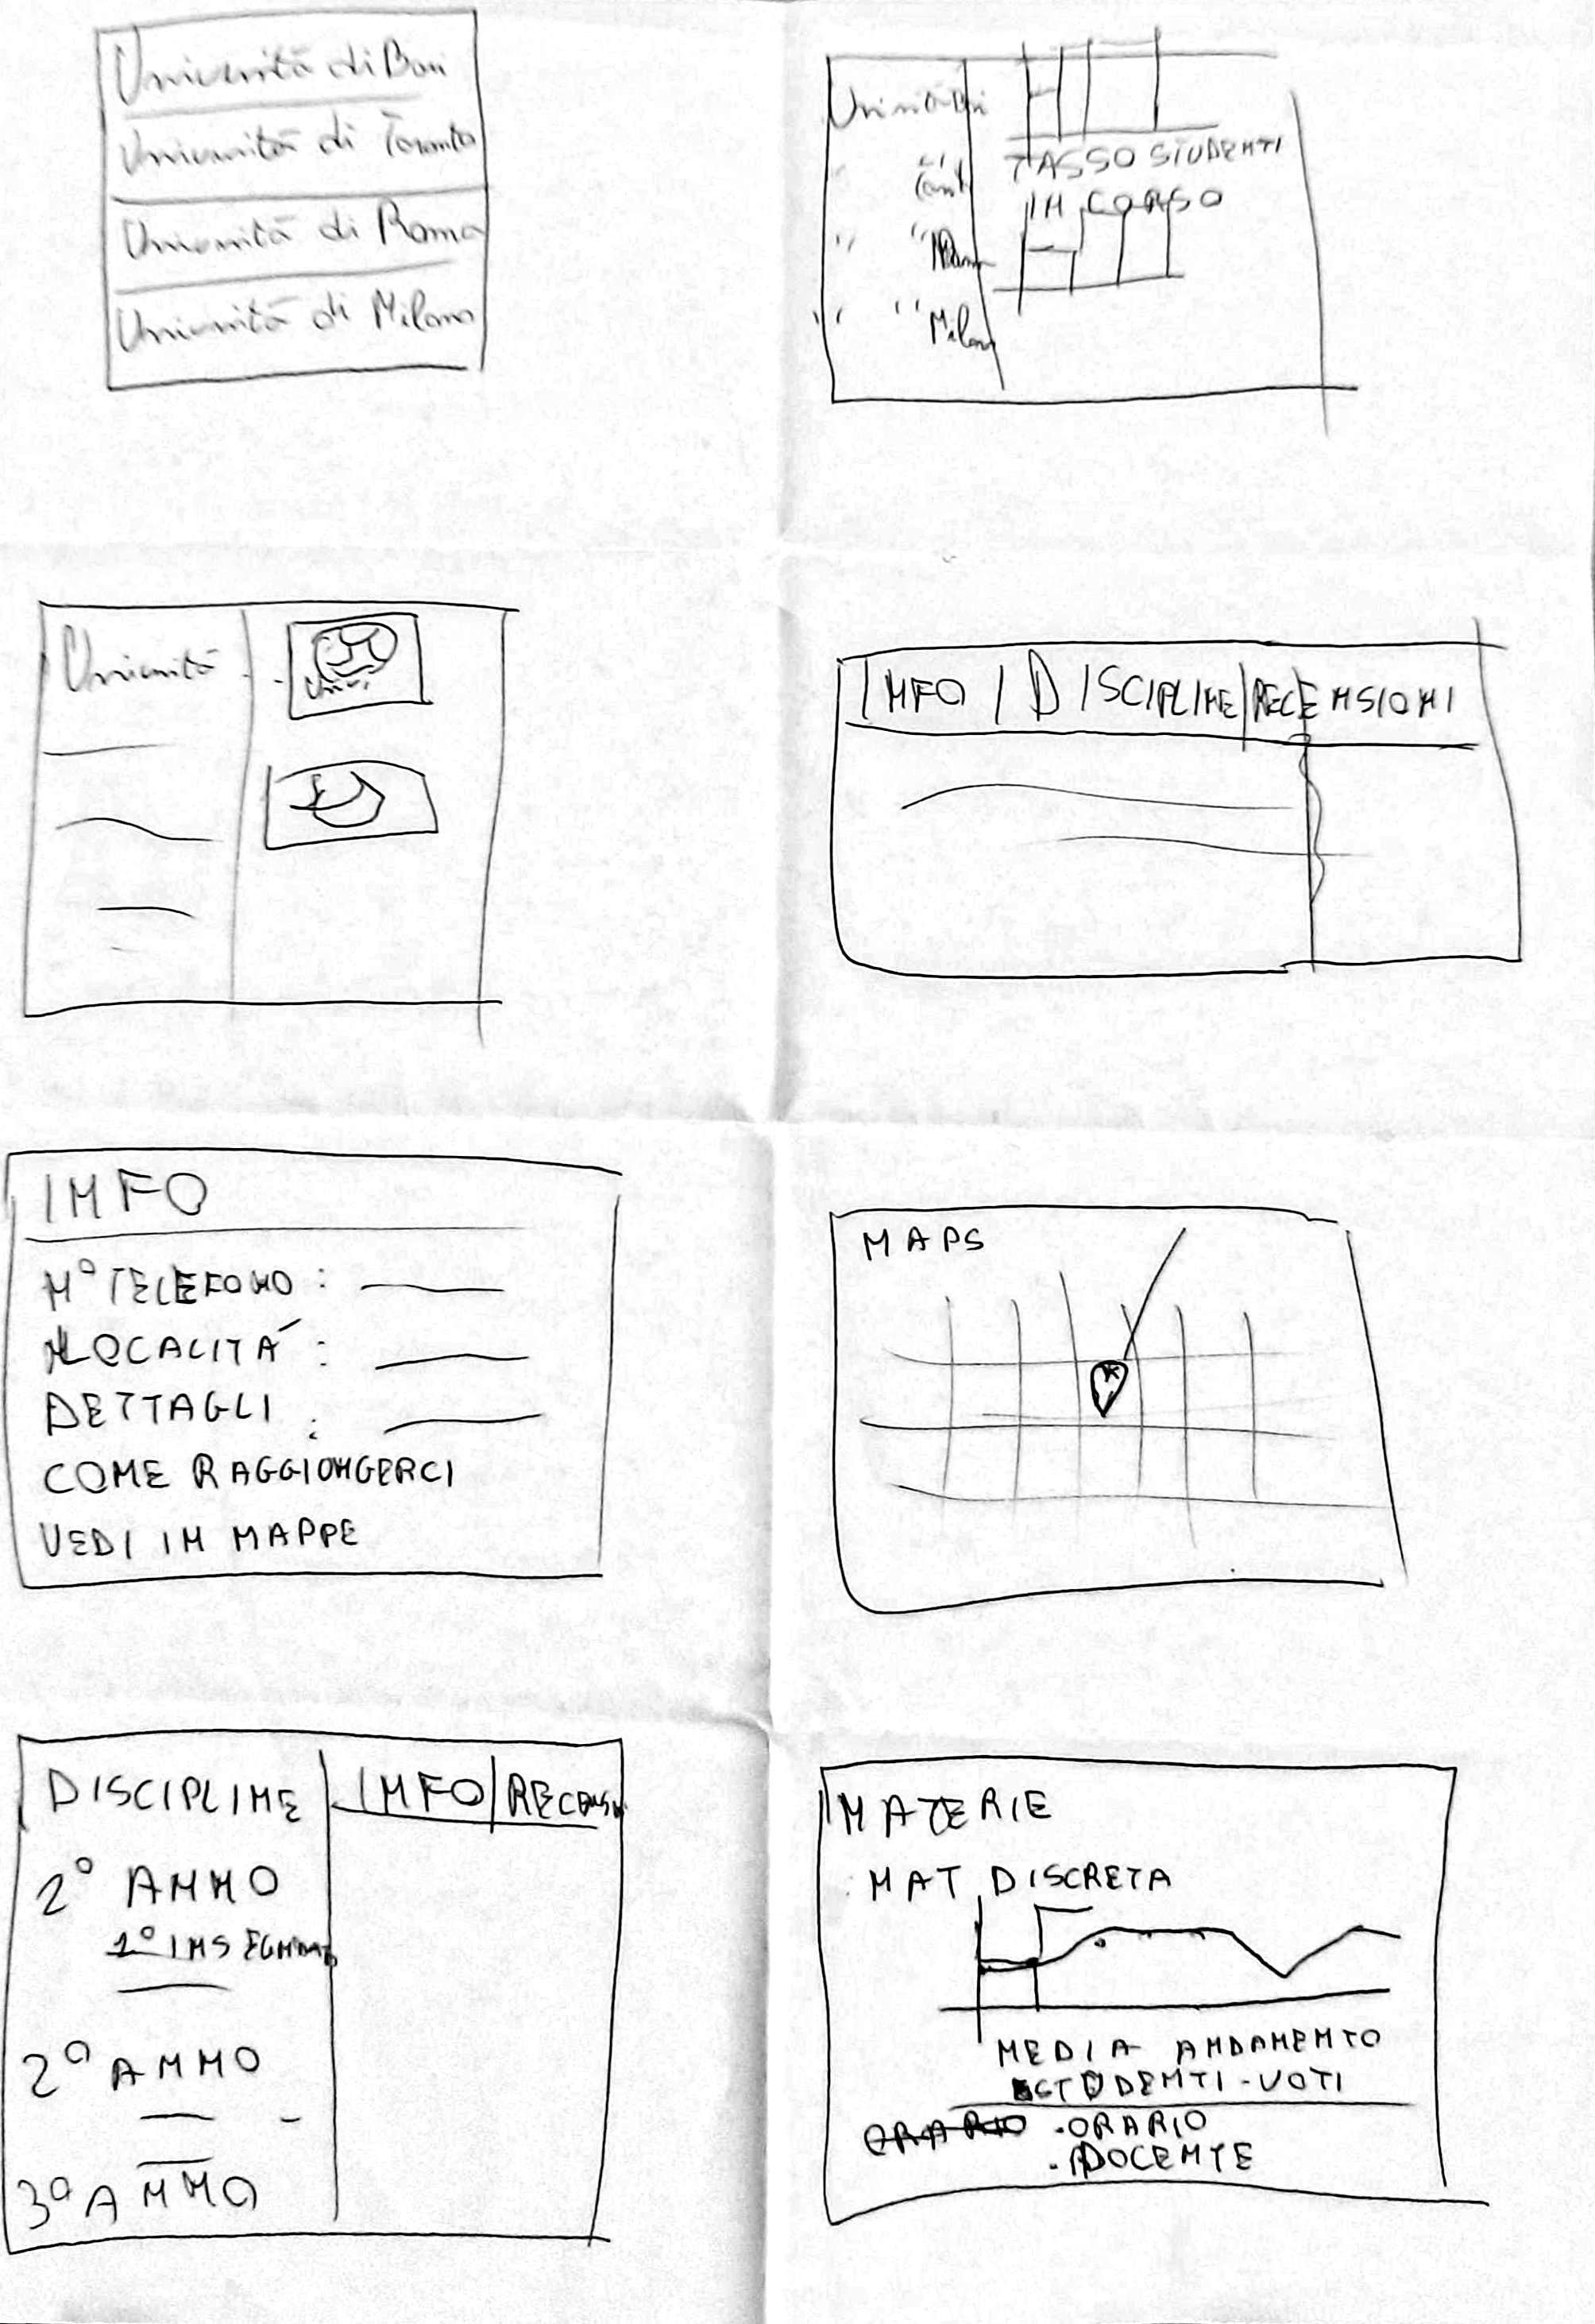 Università di Bari
Università di Taranto
Università di Roma
Università di Milano
Università Bari
" Tarant
" " Roma
" " Milan
TASSO STUDENTI
IN CORSO
Università
Univ.
INFO / DISCIPLINE | RECENSIONI
INFO
N° TELEFONO :
LOCALITÁ :
DETTAGLI :
COME RAGGIONGERCI
VEDI IN MAPPE
MAPS
DISCIPLINE | INFO | RECENSI
2° ANNO
1° INSEGNAM
2° ANNO
3° ANNO
MATERIE
MAT DISCRETA
MEDIA ANDAMENTO
STUDENTI - VOTI
ORARIO . ORARIO
. DOCENTE